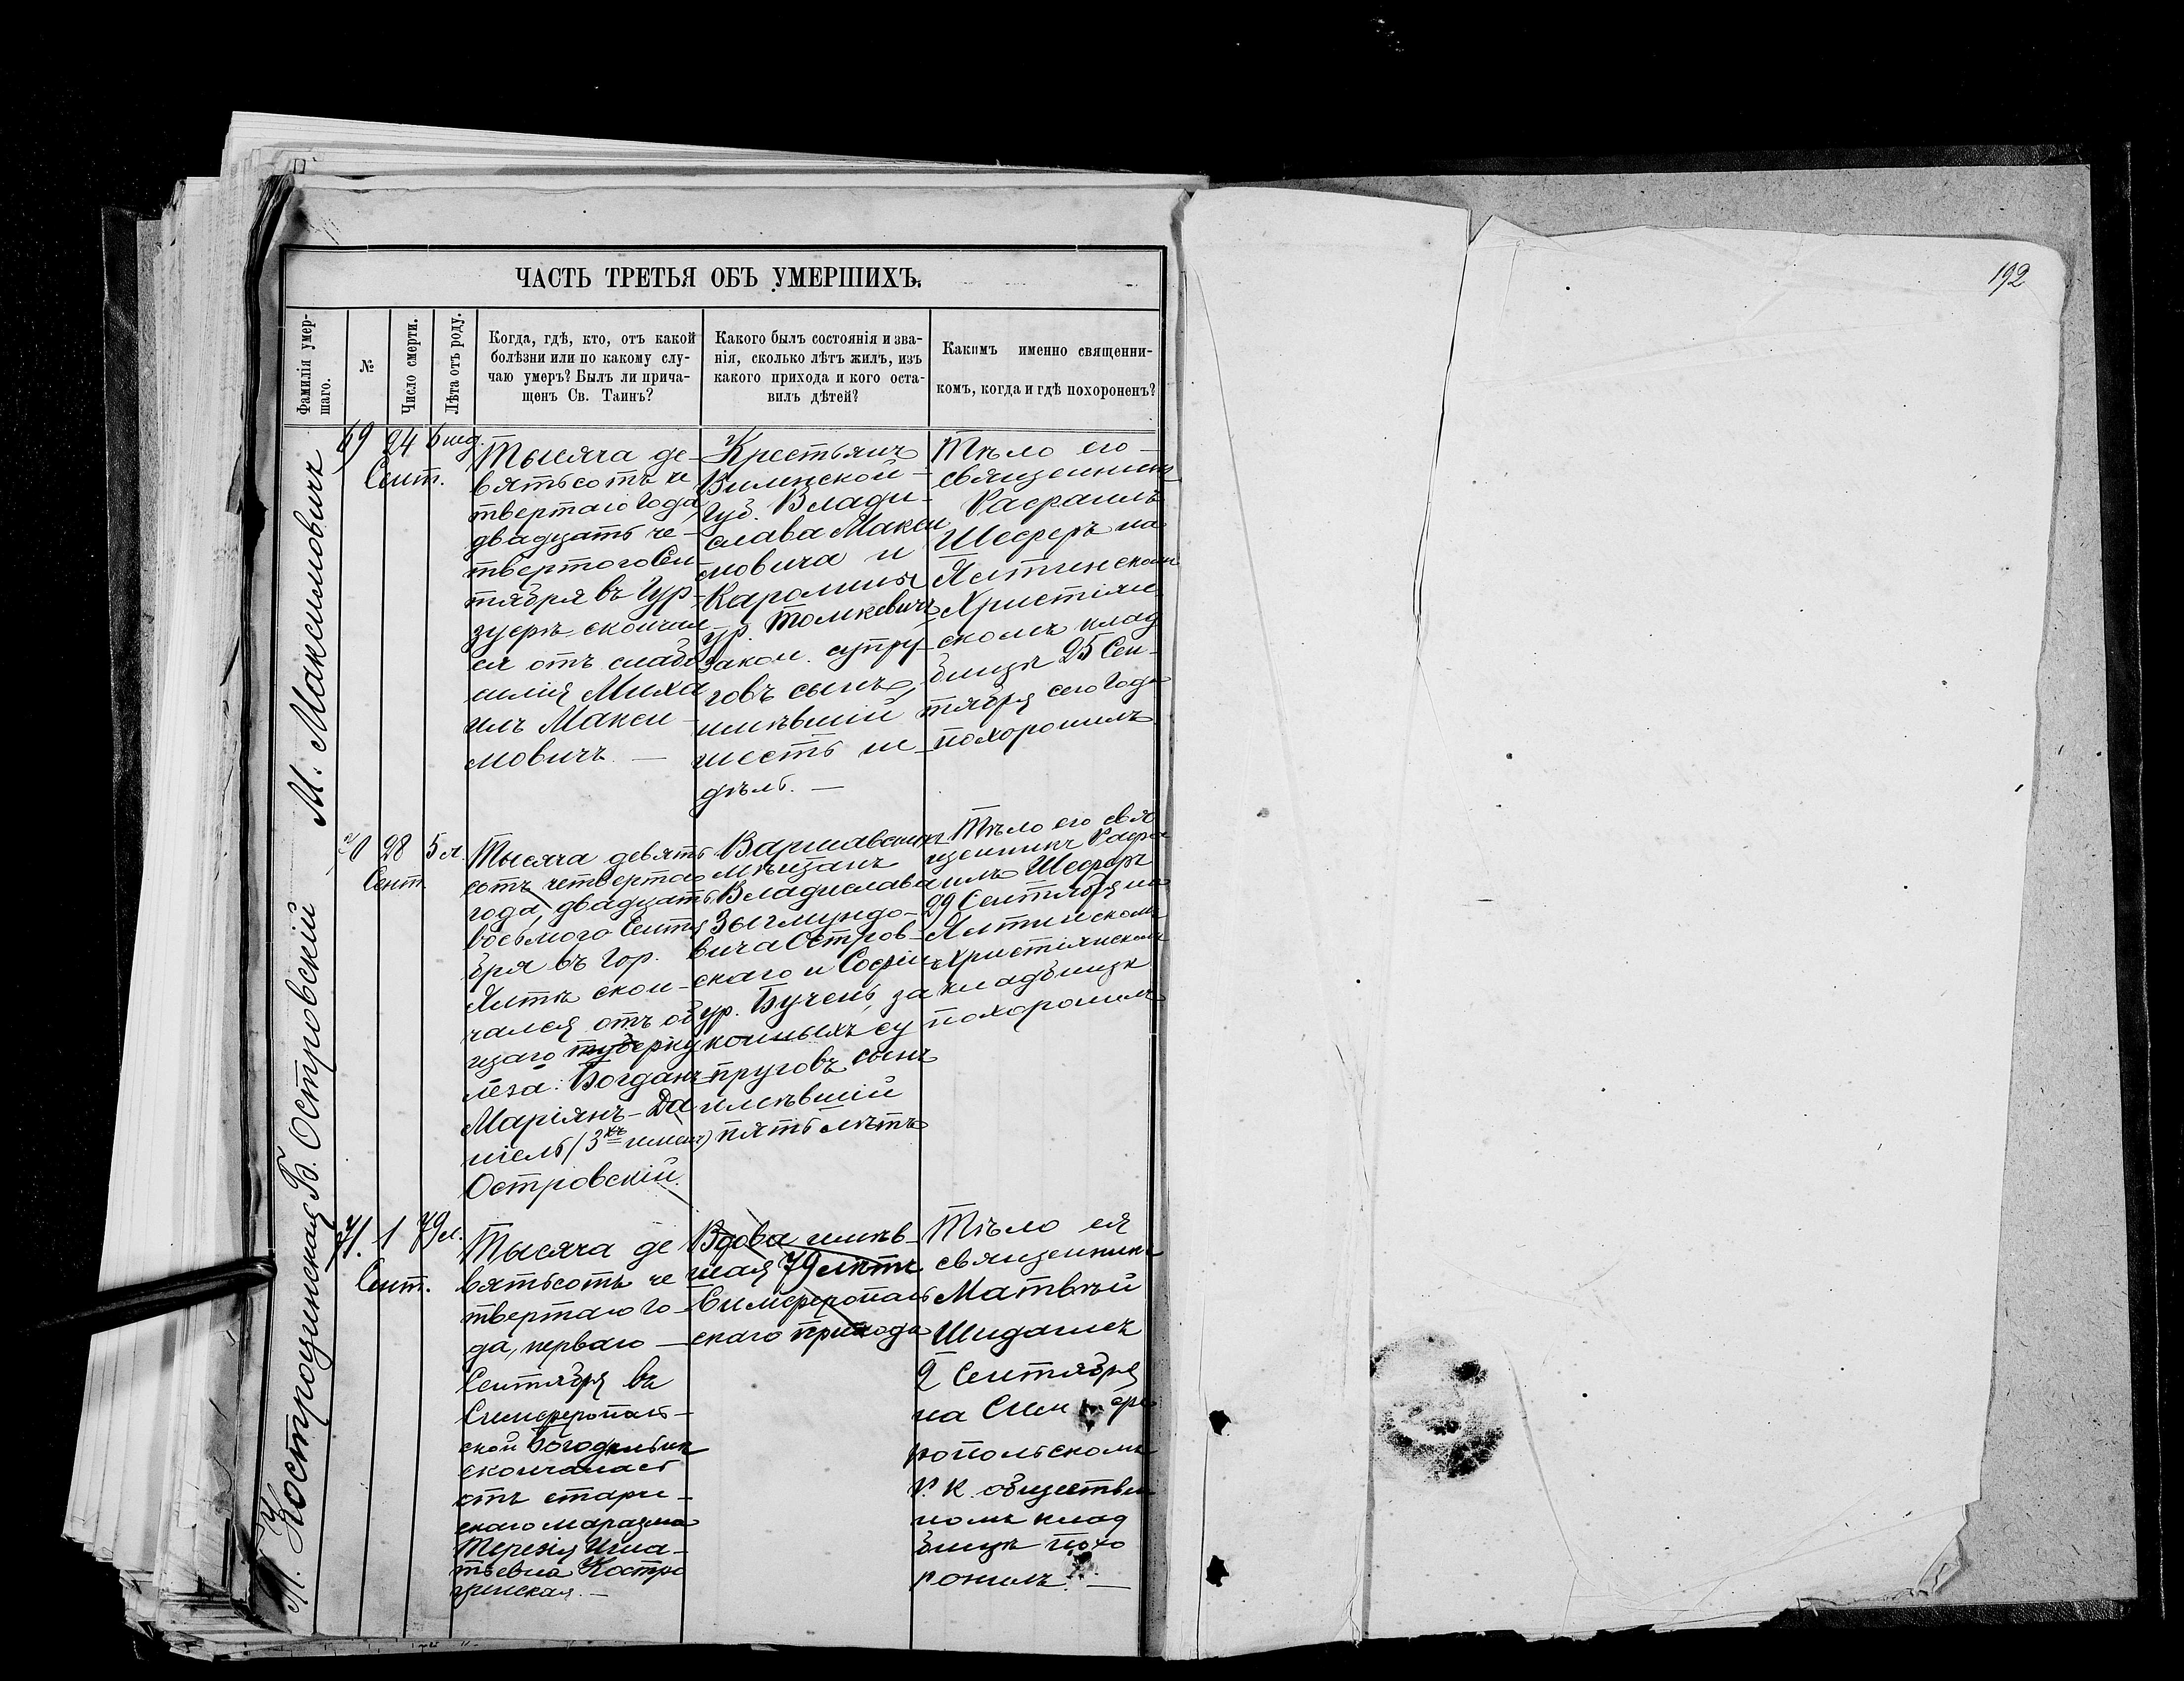 192
ЧАСТЬ ТРЕТЬЯ ОБЪ УМЕРШИХЪ.
Фамилія умер-
шаго.
№
Число смерти.
Лѣта отъ роду.
Когда, гдѣ, кто, отъ какой
болѣзни или по какому слу-
чаю умеръ? Былъ ли прича-
щенъ Св. Таинъ?
Какого былъ состоянія и зва-
нія, сколько лѣтъ жилъ, изъ
какого прихода и кого оста-
вилъ дѣтей?
Какимъ именно священни-
комъ, когда и гдѣ похороненъ?
М. Максимовичъ
69 24 6 нед.
Сент.
Тысяча де-
вятьсотъ че
твертаго года,
двадцать че-
твертого Сен
тября въ Гур-
зуфѣ скончал
ся отъ слабо
силія Миха
илъ Макси-
мовичъ. —
Крестьянъ
Виленской
губ. Влади-
слава Макси
мовича и
Каролины
ур. Томкевичъ
закон. супру-
говъ сынъ,
имѣвшій
шесть не-
дѣль. —
Тѣло его
священникъ
Рафаилъ
Шеферъ на
Ялтинскомъ
Христіан
скомъ клад
бищѣ 25 Сен-
тября сего года
похоронилъ
Б. Островскій
70 28 5 л.
Сент.
Тысяча девять
сотъ четвертаго
года, двадцать
восьмого Сентя
бря въ гор.
Ялтѣ скон-
чался отъ об
щаго туберку
леза Богданъ
Маріянъ-Да
ніель (3хъ именъ)
Островскій.
Варшавскихъ
мѣщанъ
Владислава
Зыгмундо-
вича Остров-
скаго и Софіи
ур. Бучень, за
конныхъ су
пруговъ сынъ
имѣвшій
пять лѣтъ
Тѣло его свя
щенникъ Рафа
илъ Шеферъ
29 Сентября на
Ялтинскомъ
Христіянскомъ
кладбищѣ
похоронилъ
71. 1 79 л.
Сент.
Тысяча де
вятьсотъ че
твертаго го-
да, перваго —
Сентября въ
Симферополь-
ской богодѣльнѣ
скончалась
отъ старче-
скаго маразма
Терезія Игна-
тьевна Костро
щинская. —
Вдова имѣв-
шая 79 лѣтъ
Симферополь
скаго прихода
Тѣло ея
священникъ
Матвѣй
2 Сентября
на Сим фе
ропольскомъ
Р. К. обществен
номъ клад
бищѣ похо
ронилъ. —